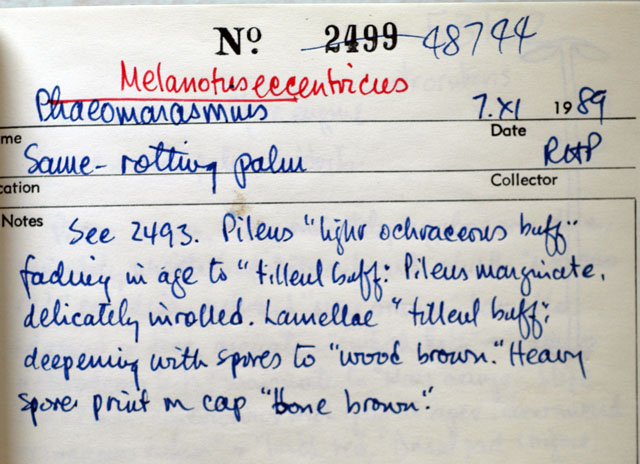 Nº 2499 48744
Melanotus eccentricus
Phaeomarasmius 7.XI 1989
me Date
Same - rotting palm RHP
cation Collector
Notes See 2493. Pileus "light ochraceous buff"
fading in age to "tilleul buff." Pileus marginate,
delicately inrolled. Lamellae "tilleul buff",
deepening with spores to "wood brown." Heavy
spore print on cap "bone brown".